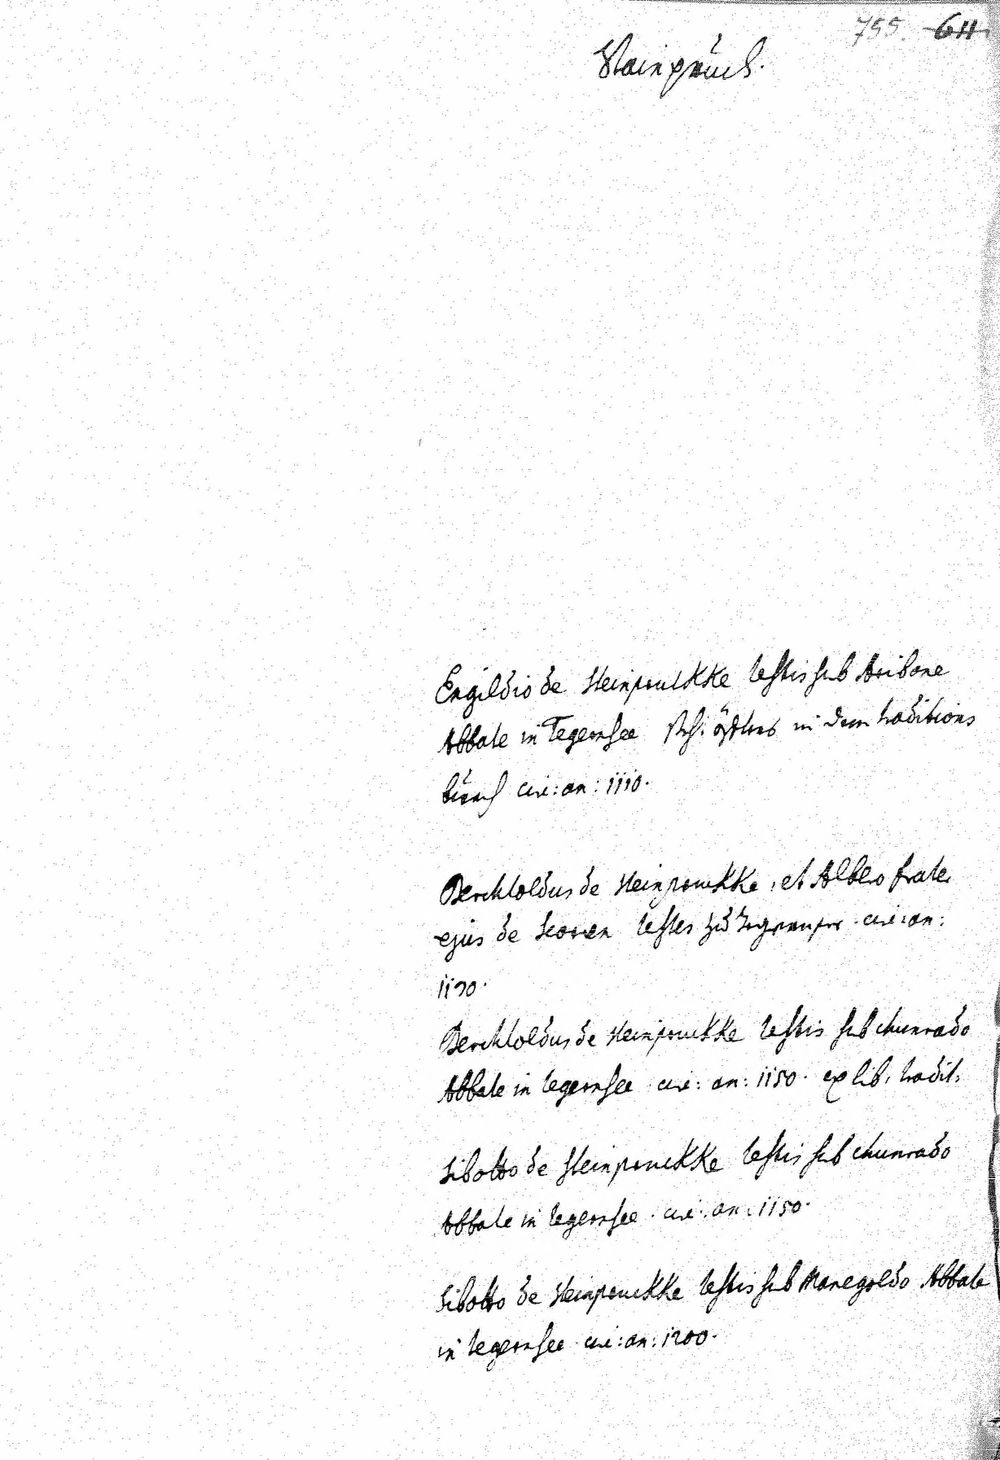 755. 611
Stainprüch.
Engildio de Steinpruckke testis sub Aribone
Abbate in Tegernsee in dem traditions
büech circ: an: 1110.
Berchtoldus de Steinpruckke, et Albero frater
ejus de testes circ: an:
1170.
Berchtoldus de Steinpruckke testis sub chunrado
Abbate in tegernsee circ: an: 1150. ex lib: tradit:
Sibotto de Steinpruckke testis sub chunrado
Abbate in tegernsee. circ: an: 1150.
Sibotto de Steinpruckke testis sub Manegoldo Abbate
in tegernsee circ: an: 1200.